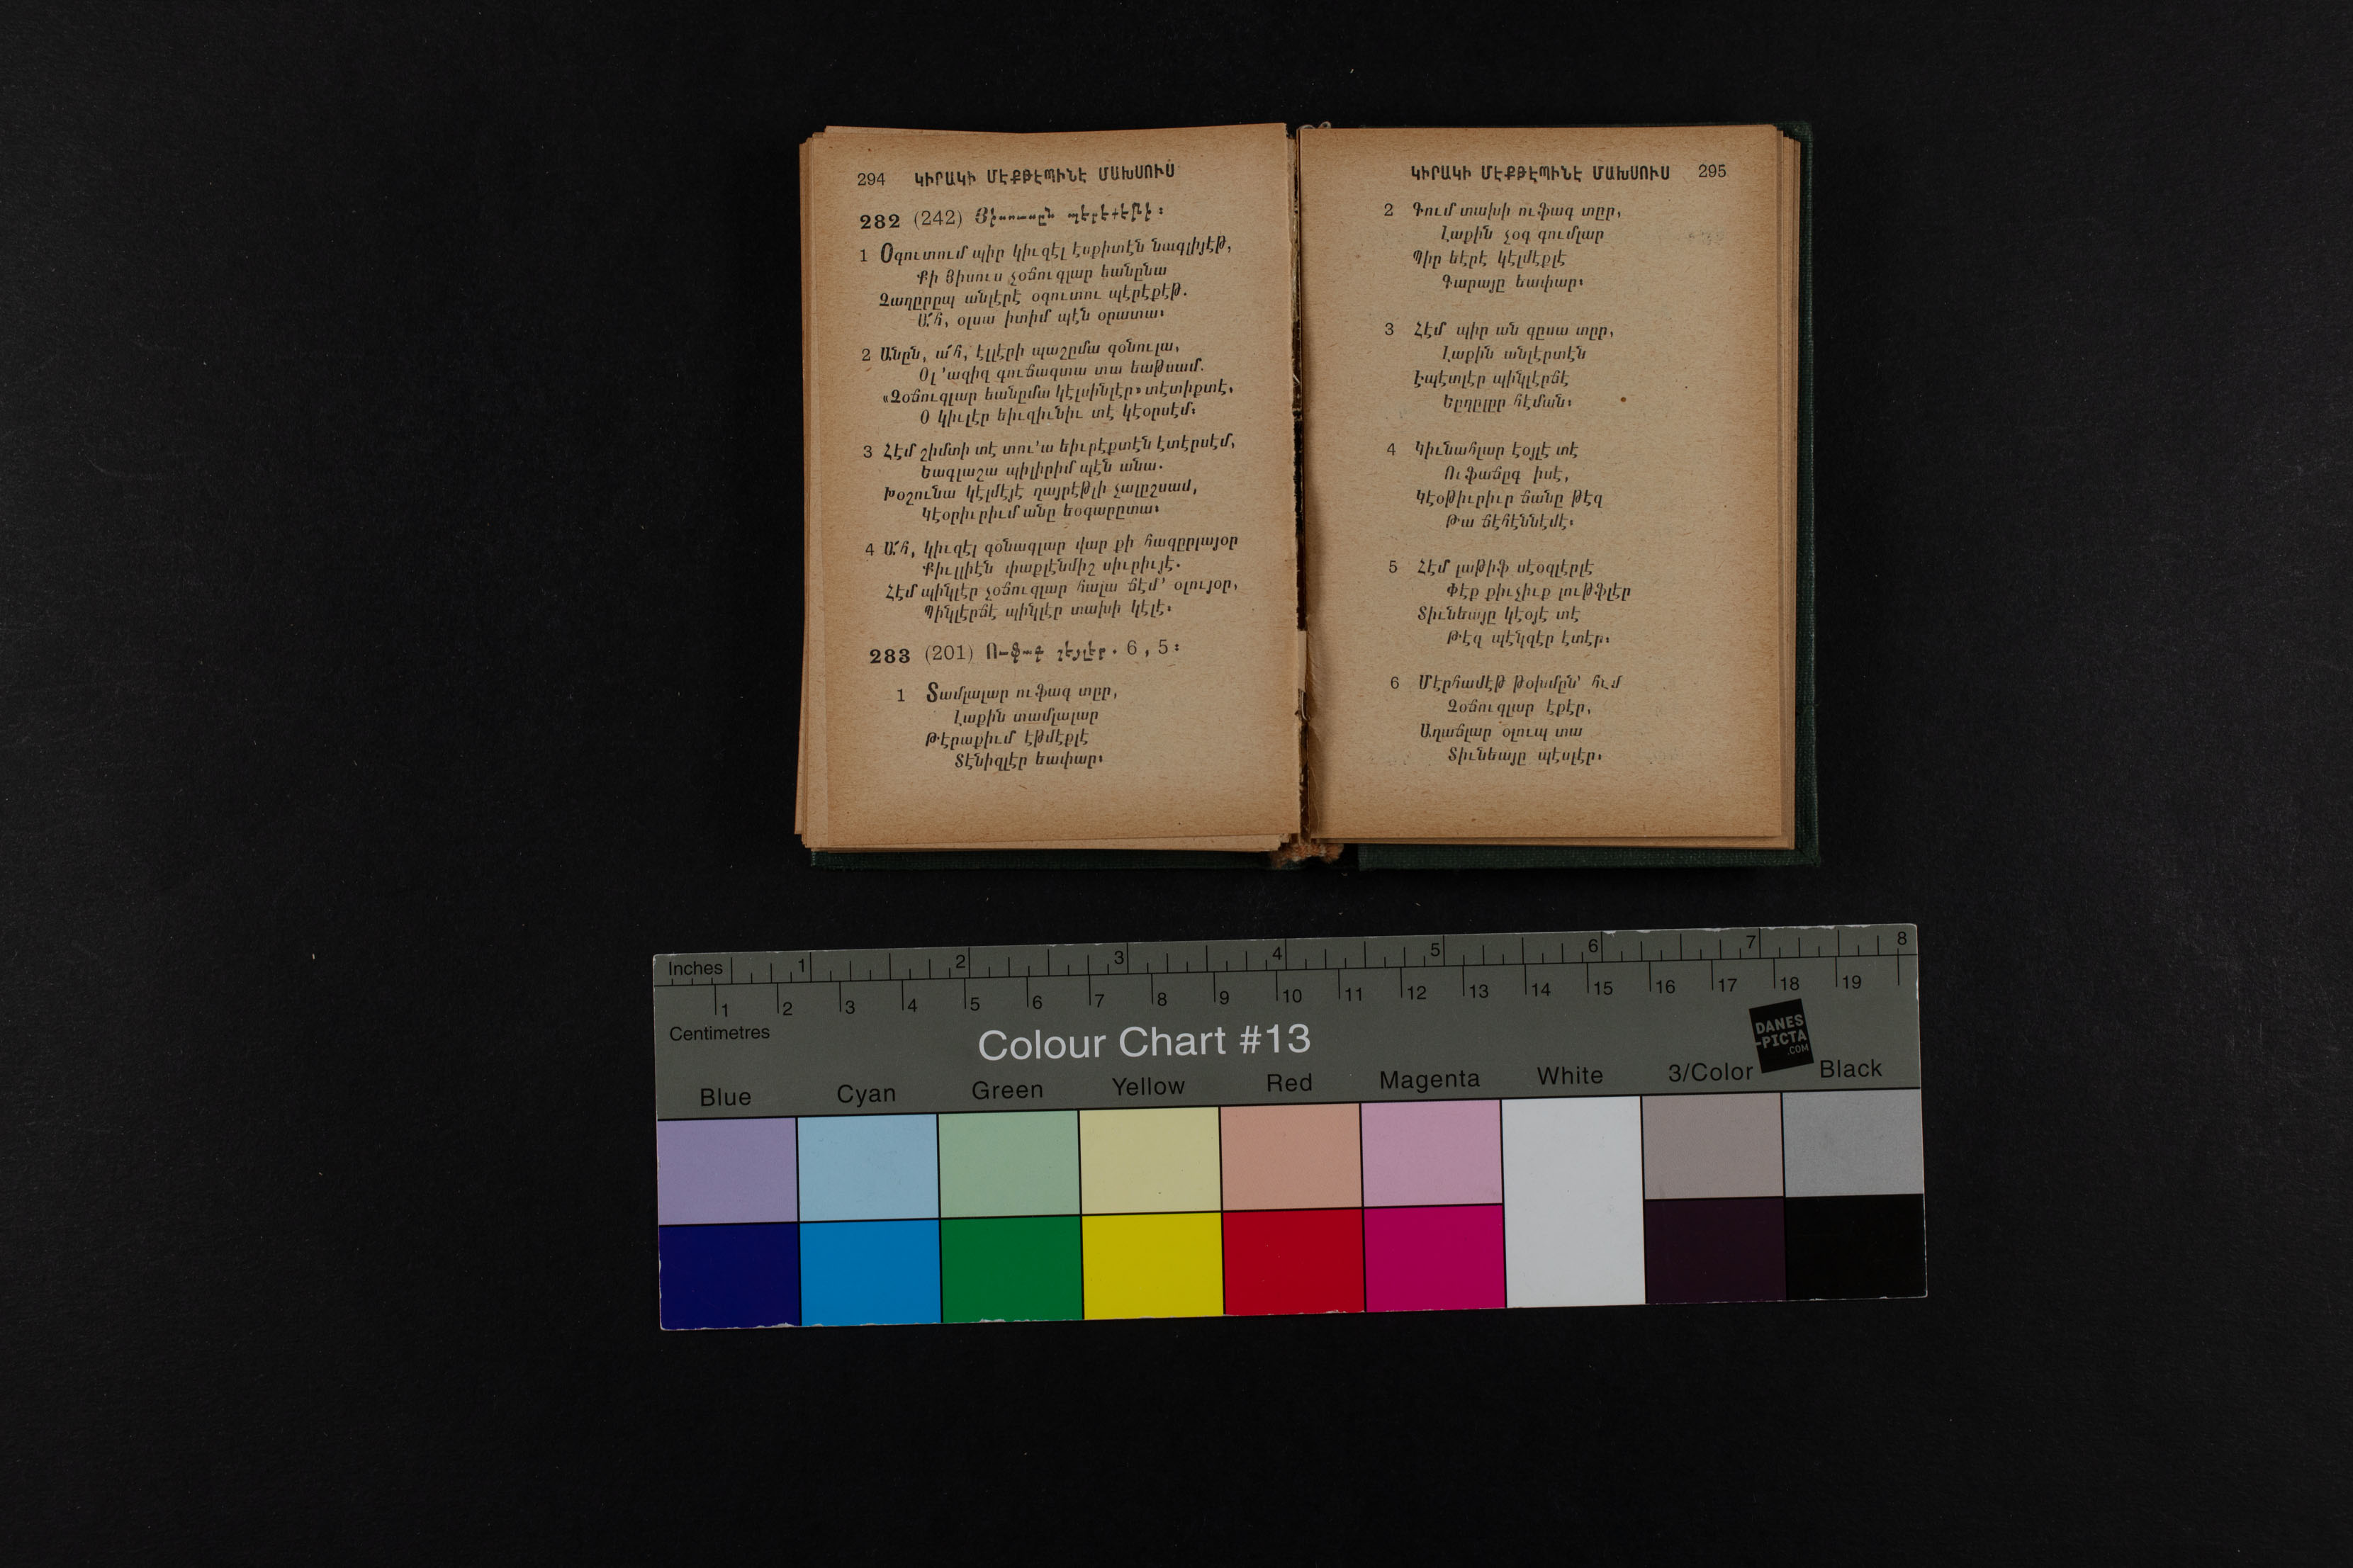 294 ԿԻՐԱԿԻ ՄԷՔԹԷՊԻՆԷ ՄԱԽՍՈՒՍ
282 (242) Յիսուսըն պէրէքէթի։
1 Օգուտում պիր կիւզէլ էսքիտէն նագլիյէթ,
Քի Յիսուս չօճուգլար եանընա
Չաղըրըպ անլէրէ օգուտու պէրէքէթ.
Ա՜հ, օլսա իտիմ պէն օրատա։
2 Անըն, ա՜հ, էլլէրի պաշըմա գօնուլա,
Օլ ՚ազիզ գուճագտա տա եաթսամ.
«Չօճուգլար եանըմա կէլսինլէր» տէտիքտէ,
Օ կիւլէր եիւզիւնիւ տէ կէօրսէմ։
3 Հէմ շիմտի տէ տու՚ա եիւրէքտէն էտէրսէմ,
Եագլաշա պիլիրիմ պէն անա.
Խօշունա կէլմէյէ ղայրէթլի չալըշսամ,
Կէօրիւրիւմ անը եօգարըտա։
4 Ա՜հ, կիւզէլ գօնագլար վար քի հազըրլայօր
Քիւլլիէն փաքլէնմիշ սիւրիւյէ.
Հէմ պինլէր չօճուգլար հալա ճէմ՚ օլույօր,
Պինլէրճէ պինլէր տախի կէլէ։
283 (201) Ուֆագ շէյլէր. 6, 5։
1 Տամլալար ուֆագ տըր,
Լաքին տամլալար
Թէրաքիւմ էթմէքլէ
Տէնիզլէր եափար։
ԿԻՐԱԿԻ ՄԷՔԹԷՊԻՆԷ ՄԱԽՍՈՒՍ 295
2 Գում տախի ուֆագ տըր,
Լաքին չօգ գումլար
Պիր եէրէ կէլմէքլէ
Գարայը եափար։
3 Հէմ պիր ան գըսա տըր,
Լաքին անլէրտէն
Էպէտլէր պինլէրճէ
Եըղըլըր հէման։
4 Կիւնահլար էօյլէ տէ
Ուֆաճըգ իսէ,
Կէօթիւրիւր ճանը թէզ
Թա ճէհէննէմէ։
5 Հէմ լաթիֆ սէօզլէրլէ
Փէք քիւչիւք լութֆլէր
Տիւնեայը կէօյէ տէ
Թէզ պէնզէր էտէր։
6 Մէրհամէթ թօխմըն՚ հէմ
Չօճուգլար էքէր,
Աղաճլար օլուպ տա
Տիւնեայը պէսլէր։
Inches 1 2 3 4 5 6 7 8
1 2 3 4 5 6 7 8 9 10 11 12 13 14 15 16 17 18 19
Centimetres
Colour Chart #13
DANES
-PICTA
.COM
Blue Cyan Green Yellow Red Magenta White 3/Color Black